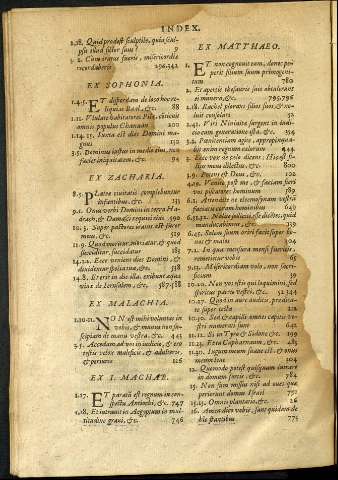 INDEX.
2.18. Quid prodest sculptile, quia sculpsit
illud fictor suus? 9
3. 2. Cum iratus fueris, misericordiæ
recordaberis 296.342
EX SOPHONIA.
1.4.5. ET disperdam de loco hoc reliquias
Baal, &c. 88
1.11. Vlulate habitatores Pilæ, conticuit
omnis populus Chanaan 200
1.14.15. Iuxta est dies Domini magnus
132
3.5. Dominus iustus in medio eius, non
faciet iniquitatem, &c. 94
EX ZACHARIA.
8.5. Plateæ civitatis complebuntur
infantibus, &c. 233
9.1. Onus verbi Domini in terra Hadrach,
& Damasci requiei eius 590
10.3. Super pastores iratus est furor
meus, &c. 519
11.9. Quod moritur, moriatur, & quod
succiditur, succidatur 185
14.1.2. Ecce venient dies Domini, &
dividentur spolia tua, &c. 538
14.8. Et erit in die illa, exibunt aquæ
vivæ de Ierusalem 587.588
EX MALACHIA.
1.10.11. NOn est mihi voluntas in
vobis, & munus non suscipiam
de manu vestra, &c. 445
3.5. Accedam ad vos in iudicio, & ero
testis velox maleficis, & adulteris,
& periuris 126
EX I. MACHAB.
1.17. ET paratum est regnum in conspectu
Antiochi, &c. 747
1.18. Et intravit in Aegyptum in multitudine
gravi, &c. 746
EX MATTHAEO.
1. ET non cognovit eam, donec peperit
filium suum primogenitum
780
2. Et apertis thesauris suis obtulerunt
ei munera, &c. 795.796
2.18. Rachel plorans filios suos, & noluit
consolari 52
Viri Ninivitæ surgent in iudicio
cum generatione ista, &c. 354
3.2. Pœnitentiam agite, appropinquavit
enim regnum cælorum 444
3. Ecce vox de cælo dicens: Hic est filius
meus dilectus, &c. 800
Venite post me, & faciam fieri
vos piscatores hominum 589
6.1. Attendite ne eleemosynam vestram
faciatis coram hominibus 649
Nolite solliciti esse dicentes, quid
manducabimus, &c. 539
Solem suum oriri facit super bonos
& malos 104
7.2. In qua mensura mensi fueritis,
remetietur vobis 65
9.13. Misericordiam volo, non sacrificium
39
10.20. Non vos estis qui loquimini, sed
spiritus patris vestri, &c. 52.344
10.27. Quod in aure auditis, prædicate
super tecta 228
10.30. Sed & capilli omnes capitis vestri
numerati sunt 642
11.21. Si in Tyro & Sidone &c. 199
11.23. Et tu Capharnaum, &c. 485
11.30. Iugum meum suave est, & onus
meum leve 104
12. Quomodo potest quisquam intrare
in domum fortis, &c. 784
15. Non sum missus nisi ad oves quæ
perierunt domus Israel 751
15.13. Omnis plantatio, &c. 26
16. Amen dico vobis, sunt quidam de
hic stantibus 775